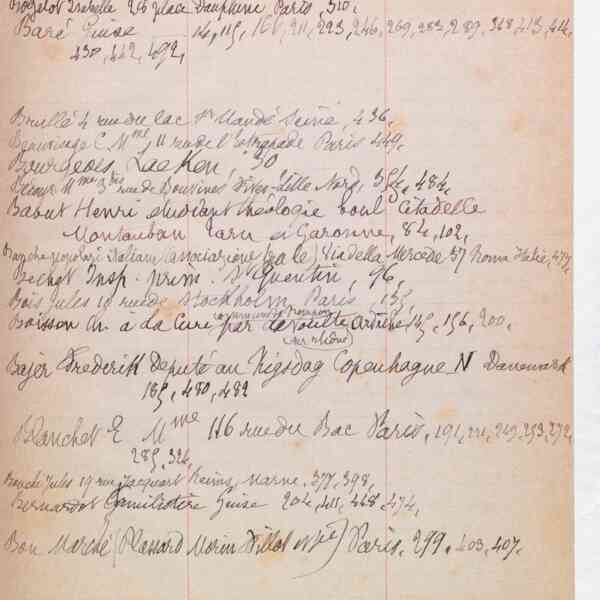 Isabelle 26 place Dauphine Paris, 310,
Baré Guise 14, 115, 168, 211, 223, 246, 269, 283, 289, 368, 413, 414,
430, 442, 492,
Brullé 4 rue du lac St Mandé Seine, 436,
C. Mme, 11 rue de l'Estrapade Paris 449,
Bourgeois Laeken 30
Mme 3 bis rue de Bouvines, Fives-Lille Nord, 354, 484,
Babut Henri étudiant théologie boul Citadelle
Montauban Tarn et Garonne, 84, 102,
Banche popolari italiane (associazione fra le) Via della Mercede 37 Roma Italie, 474,
Béchet Insp. prim. St Quentin, 96,
Bois Jules 19 rue de Stockholm, Paris 135
Boisson Ch. à la Cure par la Voulte Ardèche 145, 156, 200,
sur rhône
Bajer Frederik Député au Rigsdag Copenhague N Danemark
185, 480, 482
Blanchet E Mme 116 rue du Bac Paris, 191, 221, 249, 253, 272,
285, 326,
Jules 19 rue Jacquart Reims, Marne, 377, 398,
Bernardot Familistère Guise 204, 411, 468, 474,
Bon Marché (Plassard Morin Fillot et Cie) Paris, 299, 403, 407,